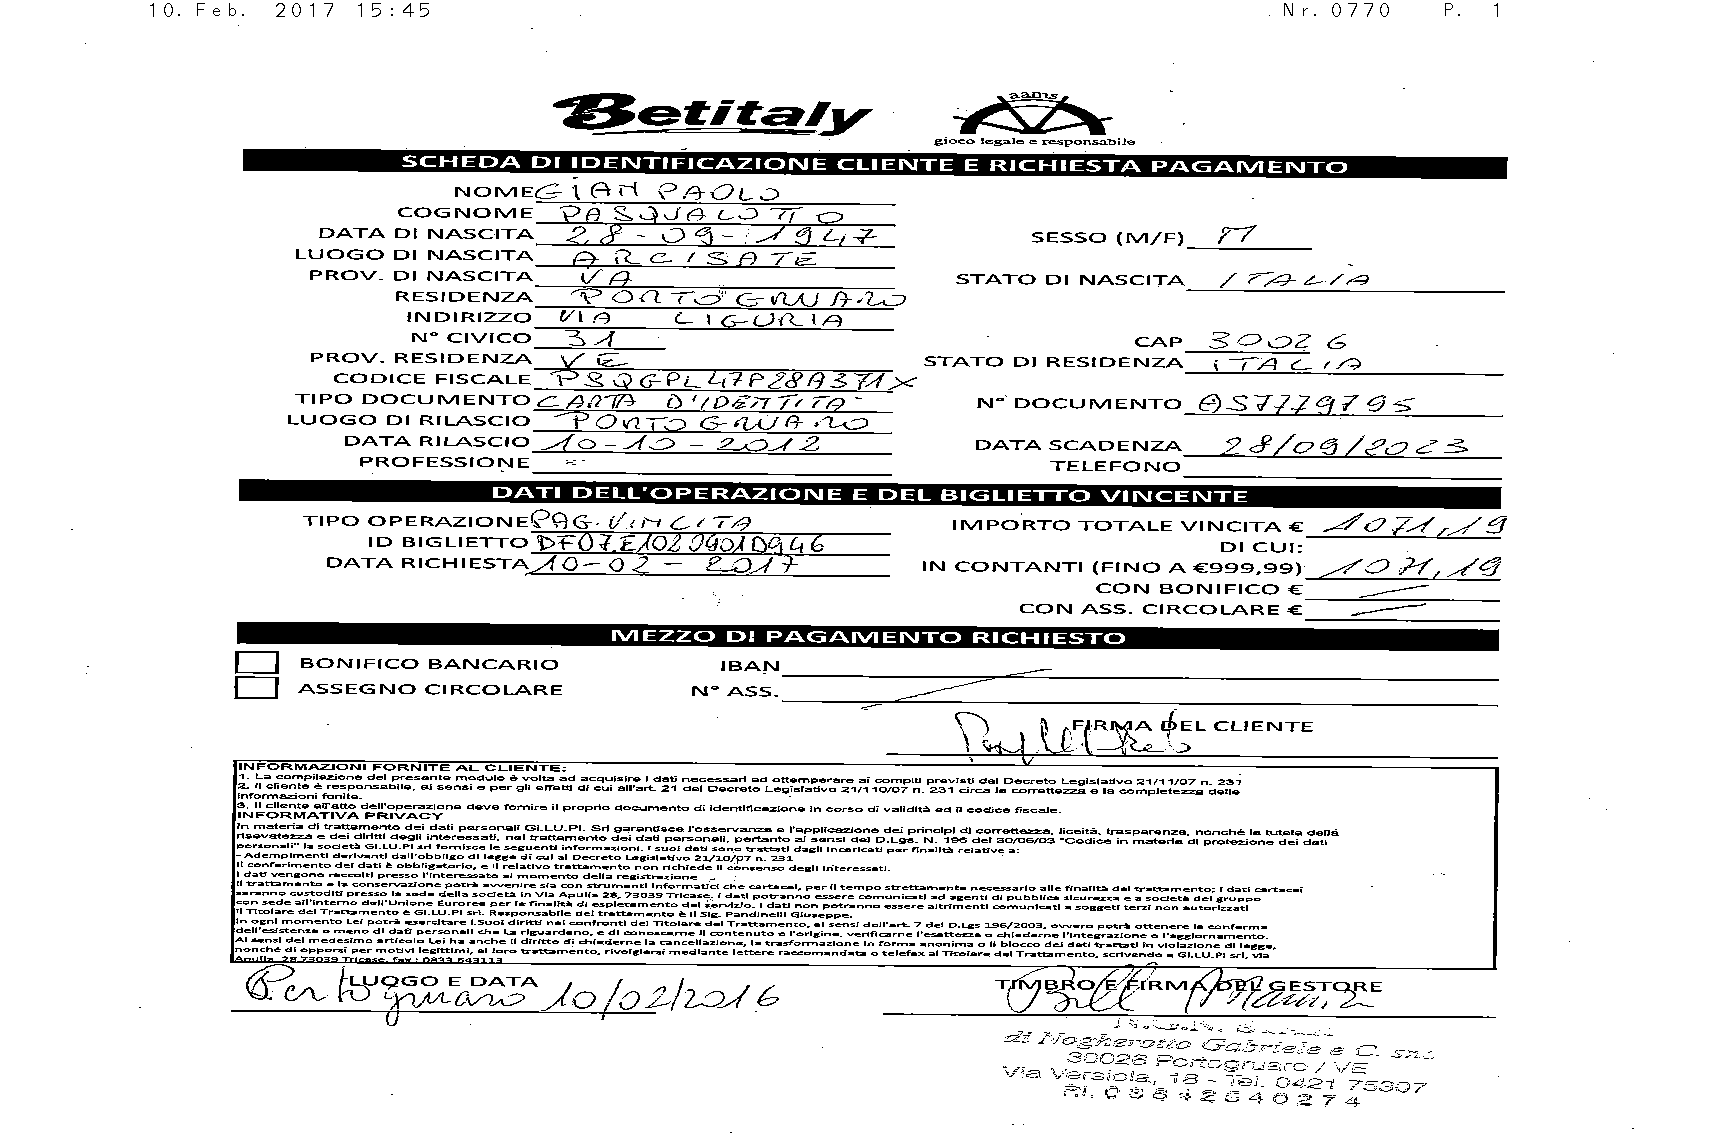 10. Feb. 2017 15:45 Nr. 0770 P. 1
Betitaly
aams
gioco legale e responsabile
SCHEDA DI IDENTIFICAZIONE CLIENTE E RICHIESTA PAGAMENTO
NOME GIAN PAOLO
COGNOME PASQUALOTTO
DATA DI NASCITA 28-09-1947 SESSO (M/F) M
LUOGO DI NASCITA ARCISATE
PROV. DI NASCITA VA STATO DI NASCITA ITALIA
RESIDENZA PORTOGRUARO
INDIRIZZO VIA LIGURIA
N° CIVICO 31 CAP 30026
PROV. RESIDENZA VE STATO DI RESIDENZA ITALIA
CODICE FISCALE PSQGPL47P28A371X
TIPO DOCUMENTO CARTA D'IDENTITA' N° DOCUMENTO AS7779795
LUOGO DI RILASCIO PORTOGRUARO
DATA RILASCIO 10-10-2012 DATA SCADENZA 28/09/2023
PROFESSIONE TELEFONO
DATI DELL'OPERAZIONE E DEL BIGLIETTO VINCENTE
TIPO OPERAZIONE PAG. VINCITA IMPORTO TOTALE VINCITA € 1071,19
ID BIGLIETTO DF07E10209010946 DI CUI:
DATA RICHIESTA 10-02-2017 IN CONTANTI (FINO A €999,99) 1071,19
CON BONIFICO €
CON ASS. CIRCOLARE €
MEZZO DI PAGAMENTO RICHIESTO
BONIFICO BANCARIO IBAN
ASSEGNO CIRCOLARE N° ASS.
FIRMA DEL CLIENTE
INFORMAZIONI FORNITE AL CLIENTE:
1. La compilazione del presente modulo è volta ad acquisire i dati necessari ad ottemperare ai compiti previsti dal Decreto Legislativo 21/11/07 n. 231
2. Il cliente è responsabile, ai sensi e per gli effetti di cui all'art. 21 del Decreto Legislativo 21/110/07 n. 231 circa la correttezza e la completezza delle
informazioni fonite.
3. Il cliente all'atto dell'operazione deve fornire il proprio documento di identificazione in corso di validità ed il codice fiscale.
INFORMATIVA PRIVACY
In materia di trattamento dei dati personali GI.LU.PI. Srl garantisce l'osservanza e l'applicazione dei principi di correttezza, liceità, trasparenza, nonché la tutela della
riservatezza e dei diritti degli interessati, nel trattamento dei dati personali, pertanto ai sensi del D.Lgs. N. 196 del 30/06/03 "Codice in materia di protezione dei dati
personali" la società GI.LU.PI srl fornisce le seguenti informazioni. I suoi dati sono trattati dagli incaricati per finalità relative a:
- Adempimenti derivanti dall'obbligo di legge di cui al Decreto Legislativo 21/10/07 n. 231
Il conferimento dei dati è obbligatorio, e il relativo trattamento non richiede il consenso degli interessati.
I dati vengono raccolti presso l'interessato al momento della registrazione
Il trattamento e la conservazione potrà avvenire sia con strumenti informatici che cartacei, per il tempo strettamente necessario alle finalità del trattamento; i dati cartacei
saranno custoditi presso la sede della società in Via Apulia 28, 73039 Tricase, i dati potranno essere comunicati ad agenti di pubblica sicurezza e a società del gruppo
con sede all'interno dell'Unione Europea per la finalità di espletamento del servizio. I dati non potranno essere altrimenti comunicati a soggetti terzi non autorizzati
Il Titolare del Trattamento è GI.LU.PI srl. Responsabile del trattamento è il Sig. Pandinelli Giuseppe.
In ogni momento Lei potrà esercitare i Suoi diritti nei confronti del Titolare del Trattamento, ai sensi dell'art. 7 del D.Lgs 196/2003, ovvero potrà ottenere la conferma
dell'esistenza o meno di dati personali che La riguardano, e di conoscerne il contenuto e l'origine, verificarne l'esattezza o chiederne l'integrazione o l'aggiornamento.
Ai sensi del medesimo articolo Lei ha anche il diritto di chiederne la cancellazione, la trasformazione in forma anonima o il blocco dei dati trattati in violazione di legge,
nonché di opporsi per motivi legittimi, al loro trattamento, rivolgersi mediante lettere raccomandata o telefax al Titolare del Trattamento, scrivendo a GI.LU.PI srl, via
Apulia 28 73039 Tricase, fax: 0833 543113
LUOGO E DATA TIMBRO E FIRMA DEL GESTORE
Portogruaro 10/02/2016
di Nogherotto Gabriele e C. snc
30026 Portogruaro / VE
Via Versiola, 18 - Tel. 0421 75307
P.I. 03842540274